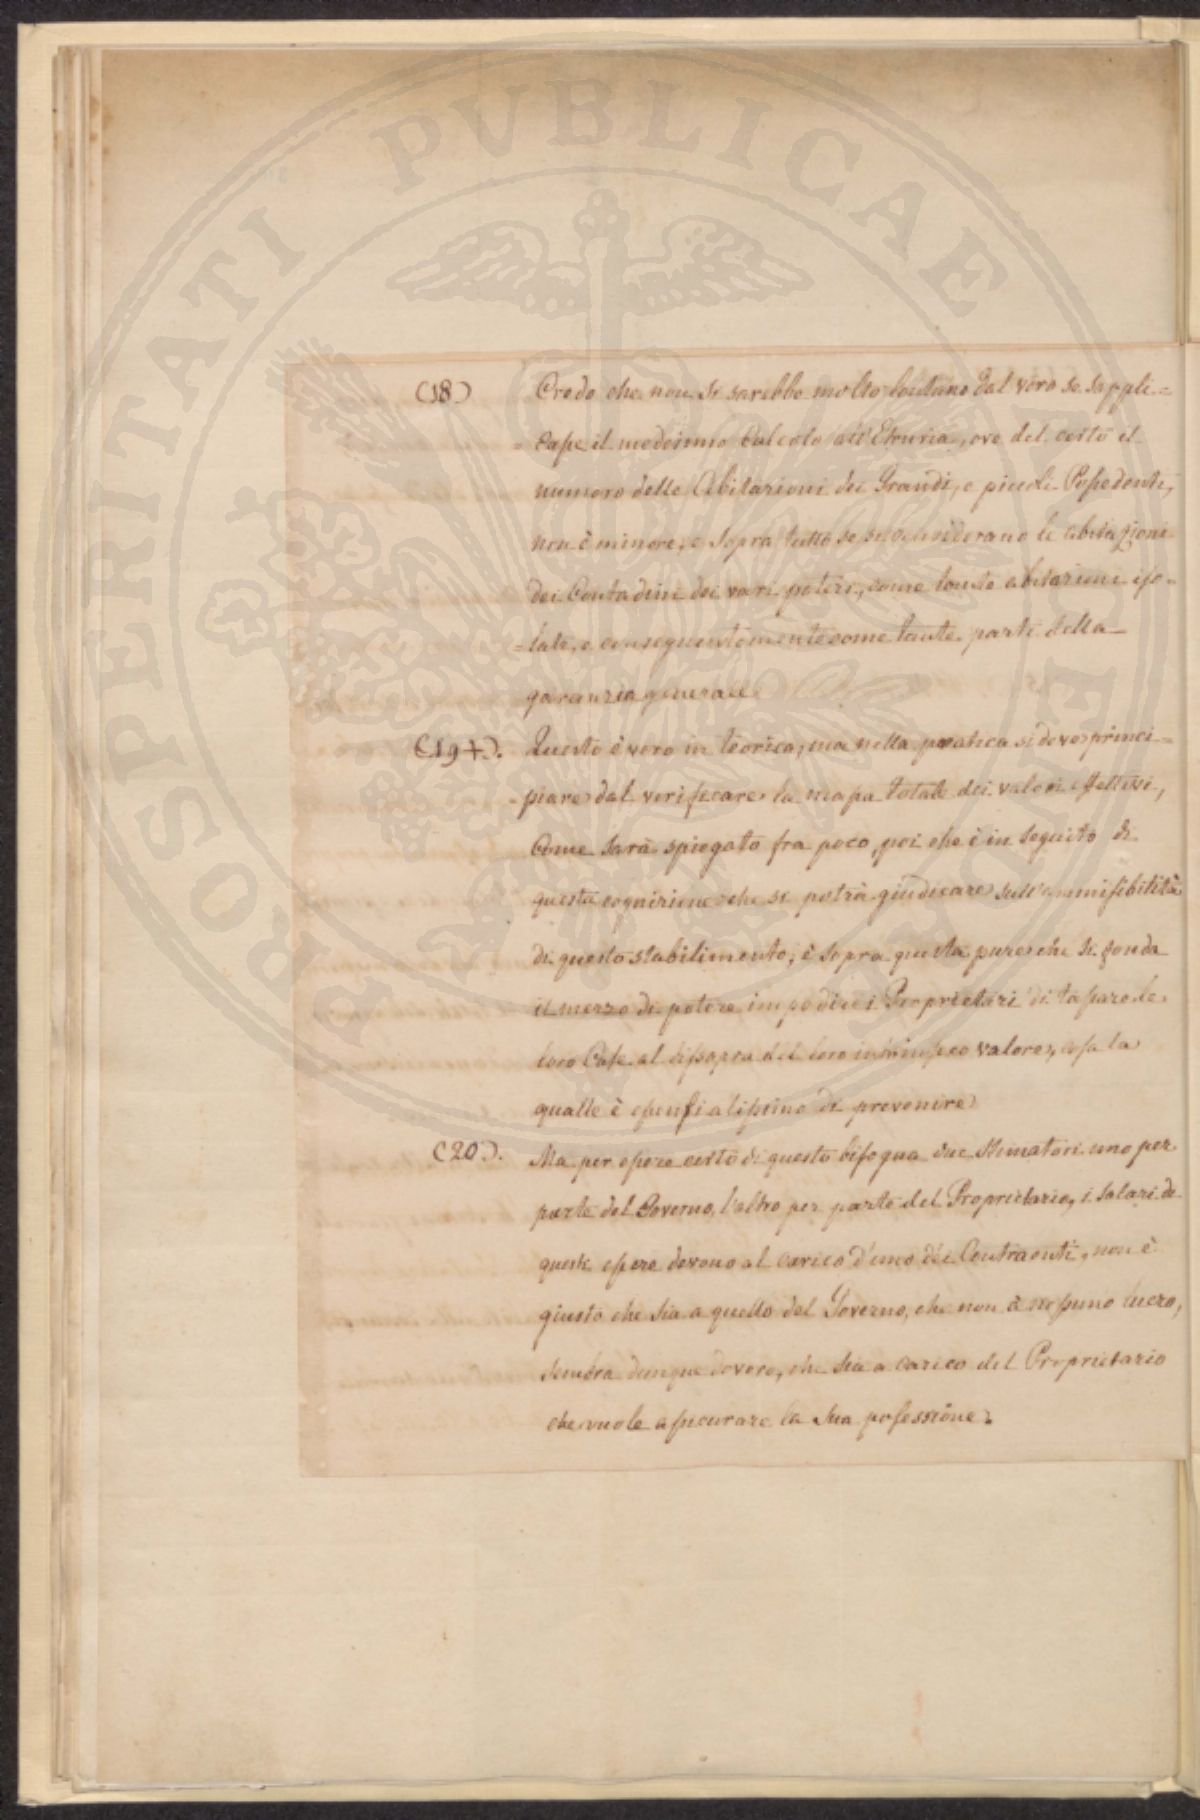 PROSPERITATI PUBLICAE AUGENDAE
(18) Credo che non si sarebbe molto lontano dal vero se s'appli-=
=casse il medesimo calcolo all'Etruria, ove del certo il
numero delle Abitazioni dei Grandi, e piccoli Possedenti,
non è minore, e sopra tutto se si considerano le abitazioni
dei Contadini dei vari poderi, come tante abitazioni iso=
=late, e conseguentemente come tante parti della
garanzia generale
(19+). Questo è vero in teorica, ma nella pratica si deve princi-=
=piare dal verificare la massa totale dei valori effettivi,
Come sarà spiegato fra poco, poi che è in seguito di
questa cognizione che se potrà giudicare sull'ammissibilità
di questo stabilimento, è sopra questa pure che si fonda
il mezzo di potere impedire i Proprietari di tassare le
loro Case al dissopra del loro intrinseco valore, cosa la
qualle è essensialissimo di prevenire
(20). Ma per essere certo di questo bisogna due Stimatori uno per
parte del Governo, l'altro per parte del Proprietario, i Salari di
queste essere devono al carico d'uno dei Contraenti, non è
giusto che sia a quello del Governo, che non à nessuno lucro,
sembra dunque dovere, che sia a carico del Proprietario
che vuole assicurare la Sua possessione.